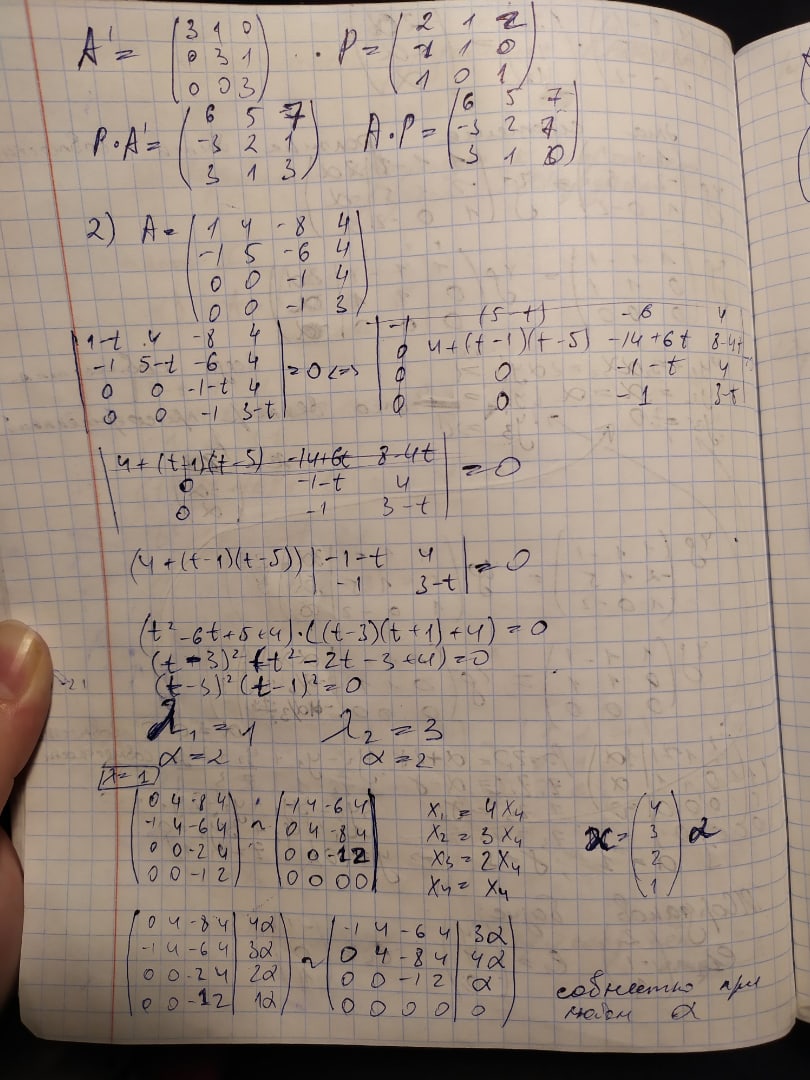 A' = (3 1 0 / 0 3 1 / 0 0 3) · P = (2 1 2 / 1 1 0 / 1 0 1)
P·A' = (6 5 7 / -3 2 1 / 3 1 3) A·P = (6 5 7 / -3 2 7 / 3 1 0)
2) A = (1 4 -8 4 / -1 5 -6 4 / 0 0 -1 4 / 0 0 -1 3)
|1-t 4 -8 4 / -1 5-t -6 4 / 0 0 -1-t 4 / 0 0 -1 3-t| = 0 <=> |-1 (5-t) -6 4 / 0 4+(t-1)(t-5) -14+6t 8-4t / 0 0 -1-t 4 / 0 0 -1 3-t|
|4+(t+1)(t-5) -14+6t 8-4t / 0 -1-t 4 / 0 -1 3-t| = 0
(4+(t-1)(t-5)) |-1-t 4 / -1 3-t| = 0
(t²-6t+5+4)·((t-3)(t+1)+4) = 0
(t-3)² (t²-2t-3+4)=0
(t-3)² (t-1)² = 0
λ₁ = 1 λ₂ = 3
α = 2 α = 2
λ = 1
(0 4 -8 4 / -1 4 -6 4 / 0 0 -2 4 / 0 0 -1 2) ~ (-1 4 -6 4 / 0 4 -8 4 / 0 0 -1 2 / 0 0 0 0) x₁ = 4x₄ x₂ = 3x₄ x₃ = 2x₄ x₄ = x₄ x = (4 / 3 / 2 / 1) α
(0 4 -8 4 | 4α / -1 4 -6 4 | 3α / 0 0 -2 4 | 2α / 0 0 -1 2 | 1α) ~ (-1 4 -6 4 | 3α / 0 4 -8 4 | 4α / 0 0 -1 2 | α / 0 0 0 0 | 0) совместно при
любом α